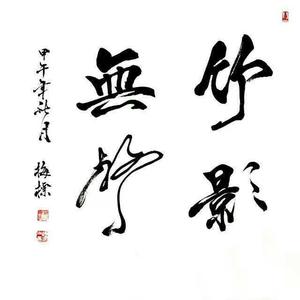 竹影
無聲
甲午年秋月
梅標